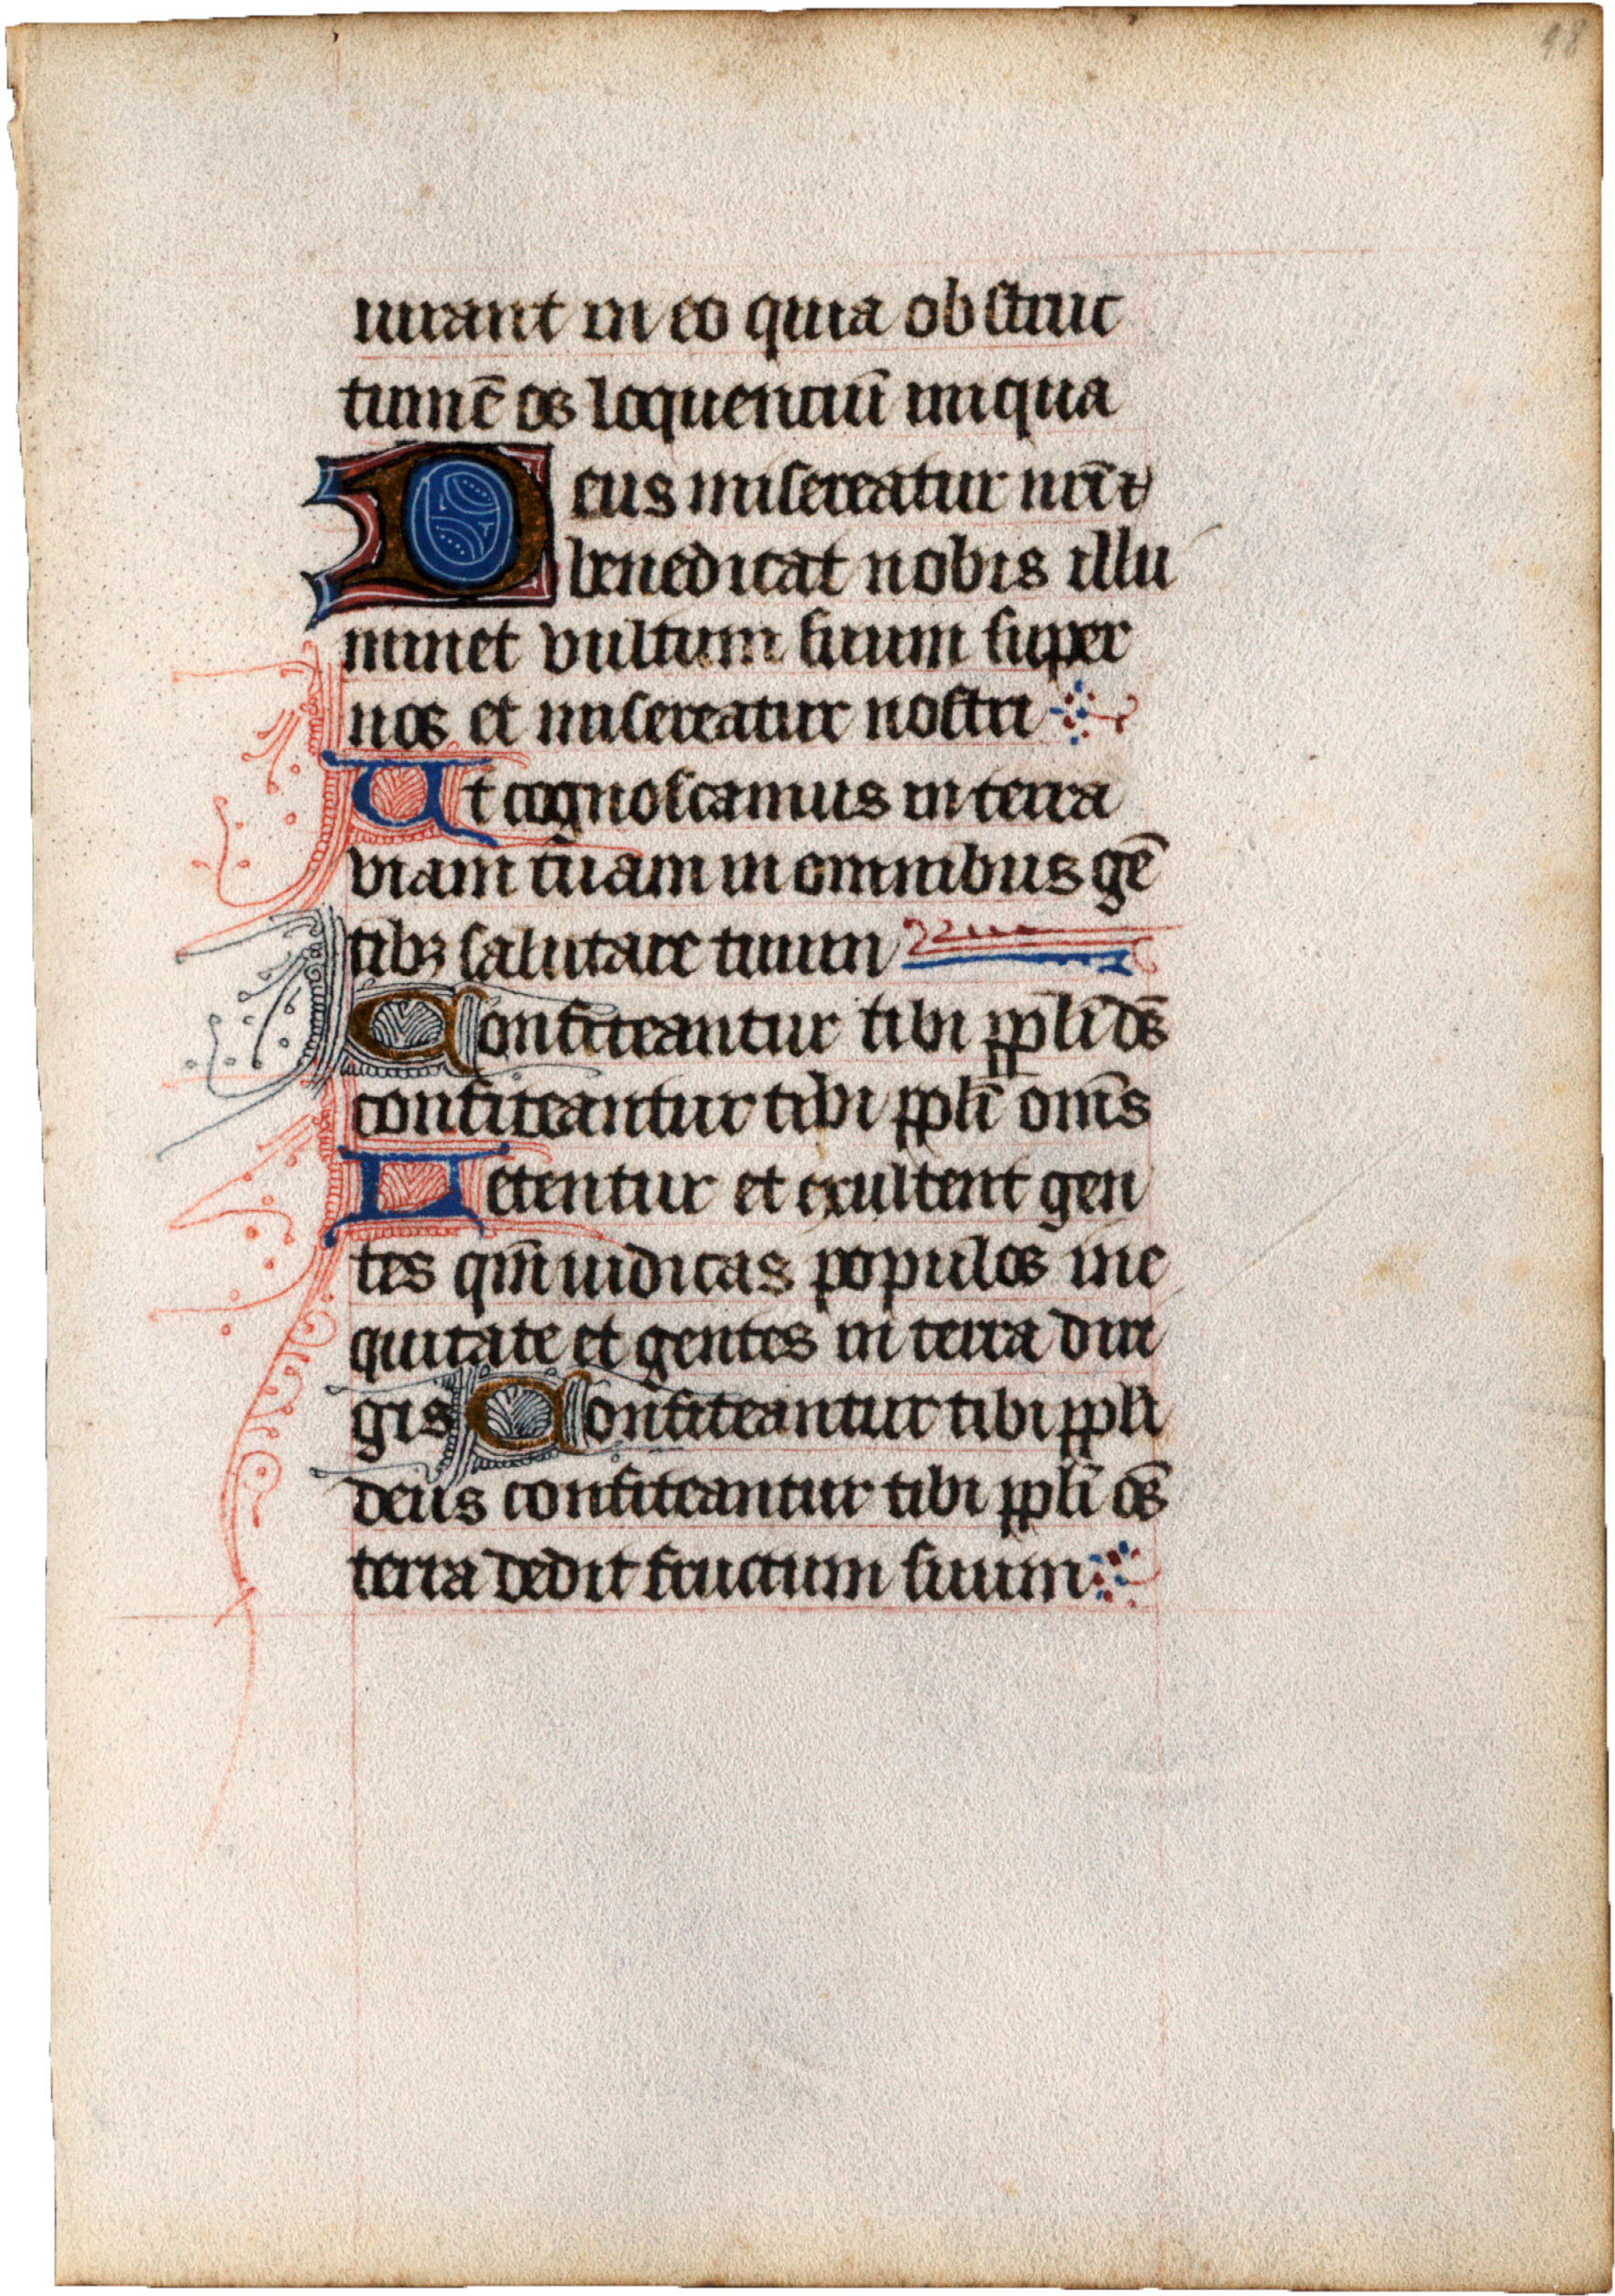 48
iurant in eo quia obstruc
tum ē os loquenciū iniqua
Deus misereatur nr̄i ⁊
benedicat nobis illu
minet vultum suum super
nos et misereatur nostri
Ut cognoscamus in terra
viam tuam in omnibus gē
tibꝫ salutare tuum
Confiteantur tibi ppl̄i ds̄
confiteantur tibi ppl̄i om̄s
Letentur et exultent gen
tes qm̄ iudicas populos in e
quitate et gentes in terra diri
gis Confiteantur tibi ppl̄i
deus confiteantur tibi ppl̄i os̄
terra dedit fructum suum